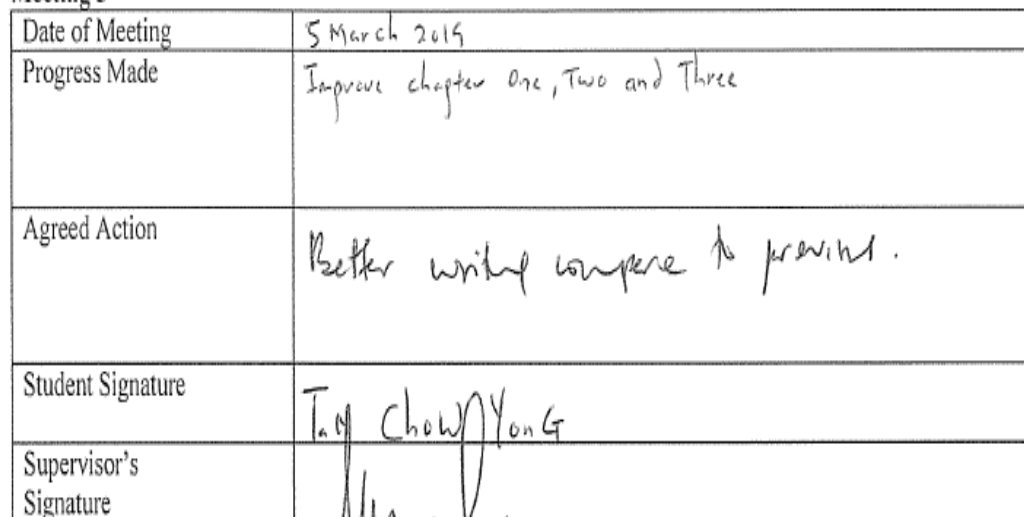 Date of Meeting 5 March 2019
Progress Made Improve chapter One, Two and Three
Agreed Action Better writing compare to previous.
Student Signature Tan Chow Yong
Supervisor's
Signature